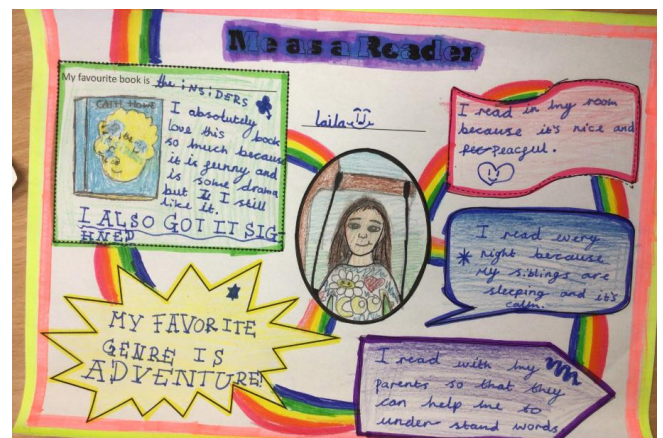 Me as a Reader
My favourite book is the iNSiDERS
CATH HOWE
I absolutely
love this book
so much because
it is funny and
is some drama
but I still
like it.
I ALSO GOT IT SIG-
HNED
laila
I read in my room
because it's nice and
peacful.
I read every
night because
my siblings are
sleeping and it's
calm.
MY FAVORITE
GENRE IS
ADVENTURE!
I read with my
parents so that they
can help me to
under stand words